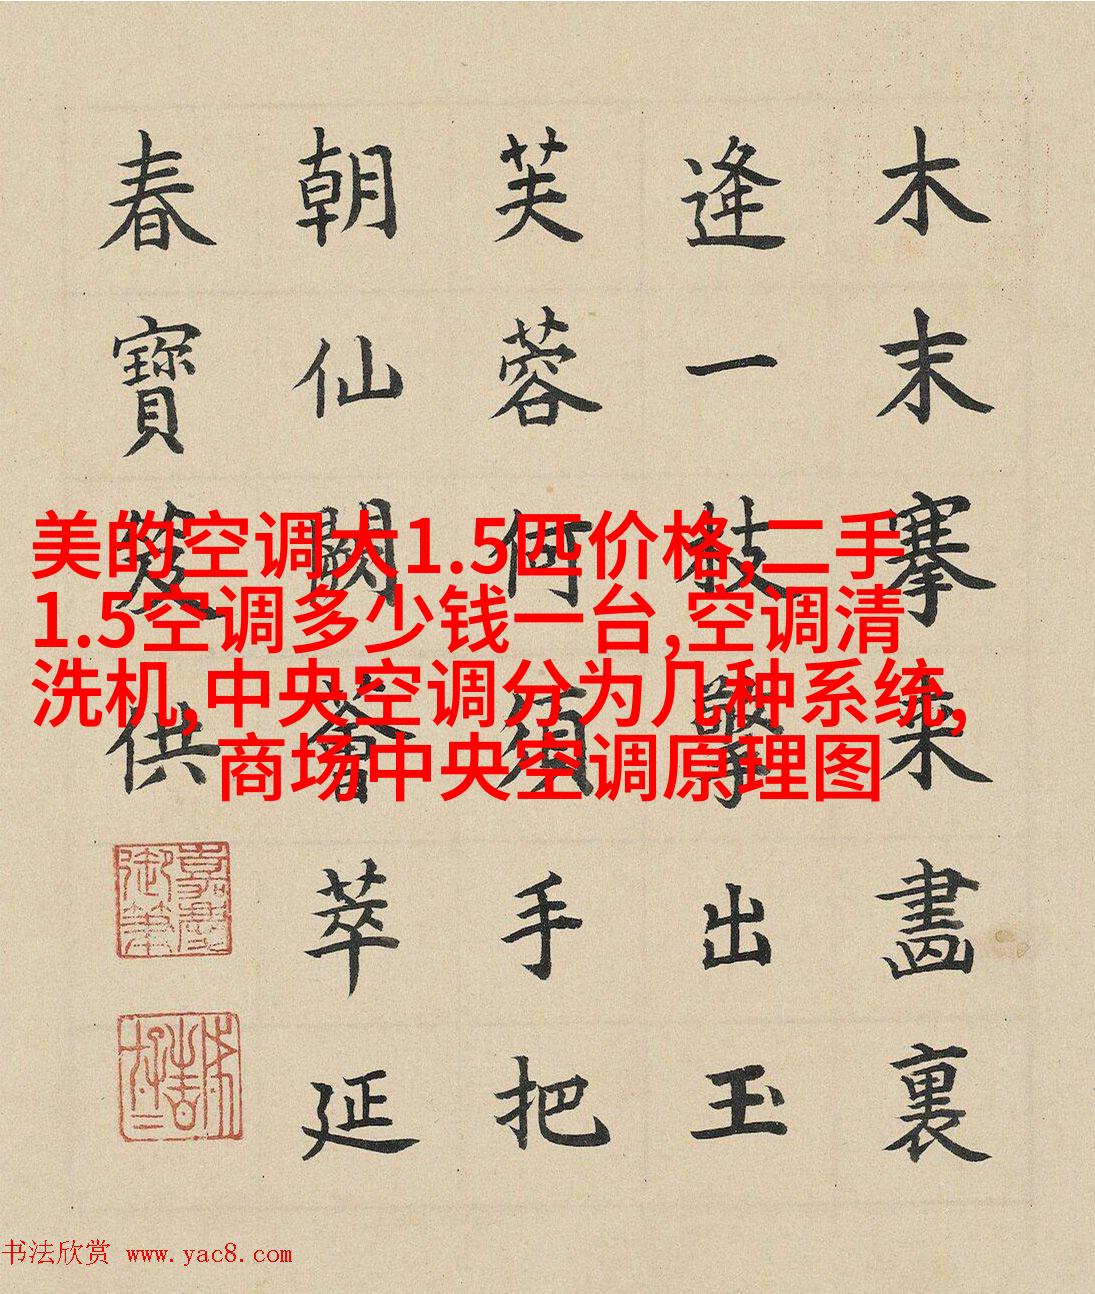 木末搴來畫裏
逢一枝擎出玉
芙蓉何須手把
朝仙闕薈萃延
春寶笈供
嘉慶
御筆
美的空调大1.5匹价格,二手
1.5空调多少钱一台,空调清
洗机,中央空调分为几种系统,
商场中央空调原理图
书法欣赏 www.yac8.com